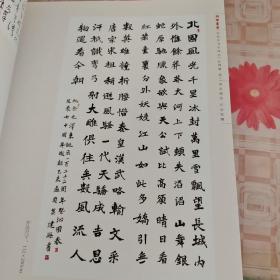 北國風光千里冰封萬里雪飄望長城内
外惟餘莽莽大河上下頓失滔滔山舞銀
蛇原馳蠟象欲與天公試比高須晴日看
紅裝素裹分外妖嬈江山如此多嬌引無
數英雄競折腰惜秦皇漢武略輸文采
唐宗宋祖稍遜風騷一代天驕成吉思
汗祇識彎弓射大雕俱往矣數風流人
物還看今朝